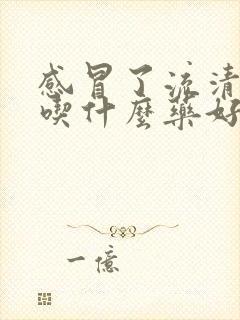 感冒了流清
喫什麼藥好
一億